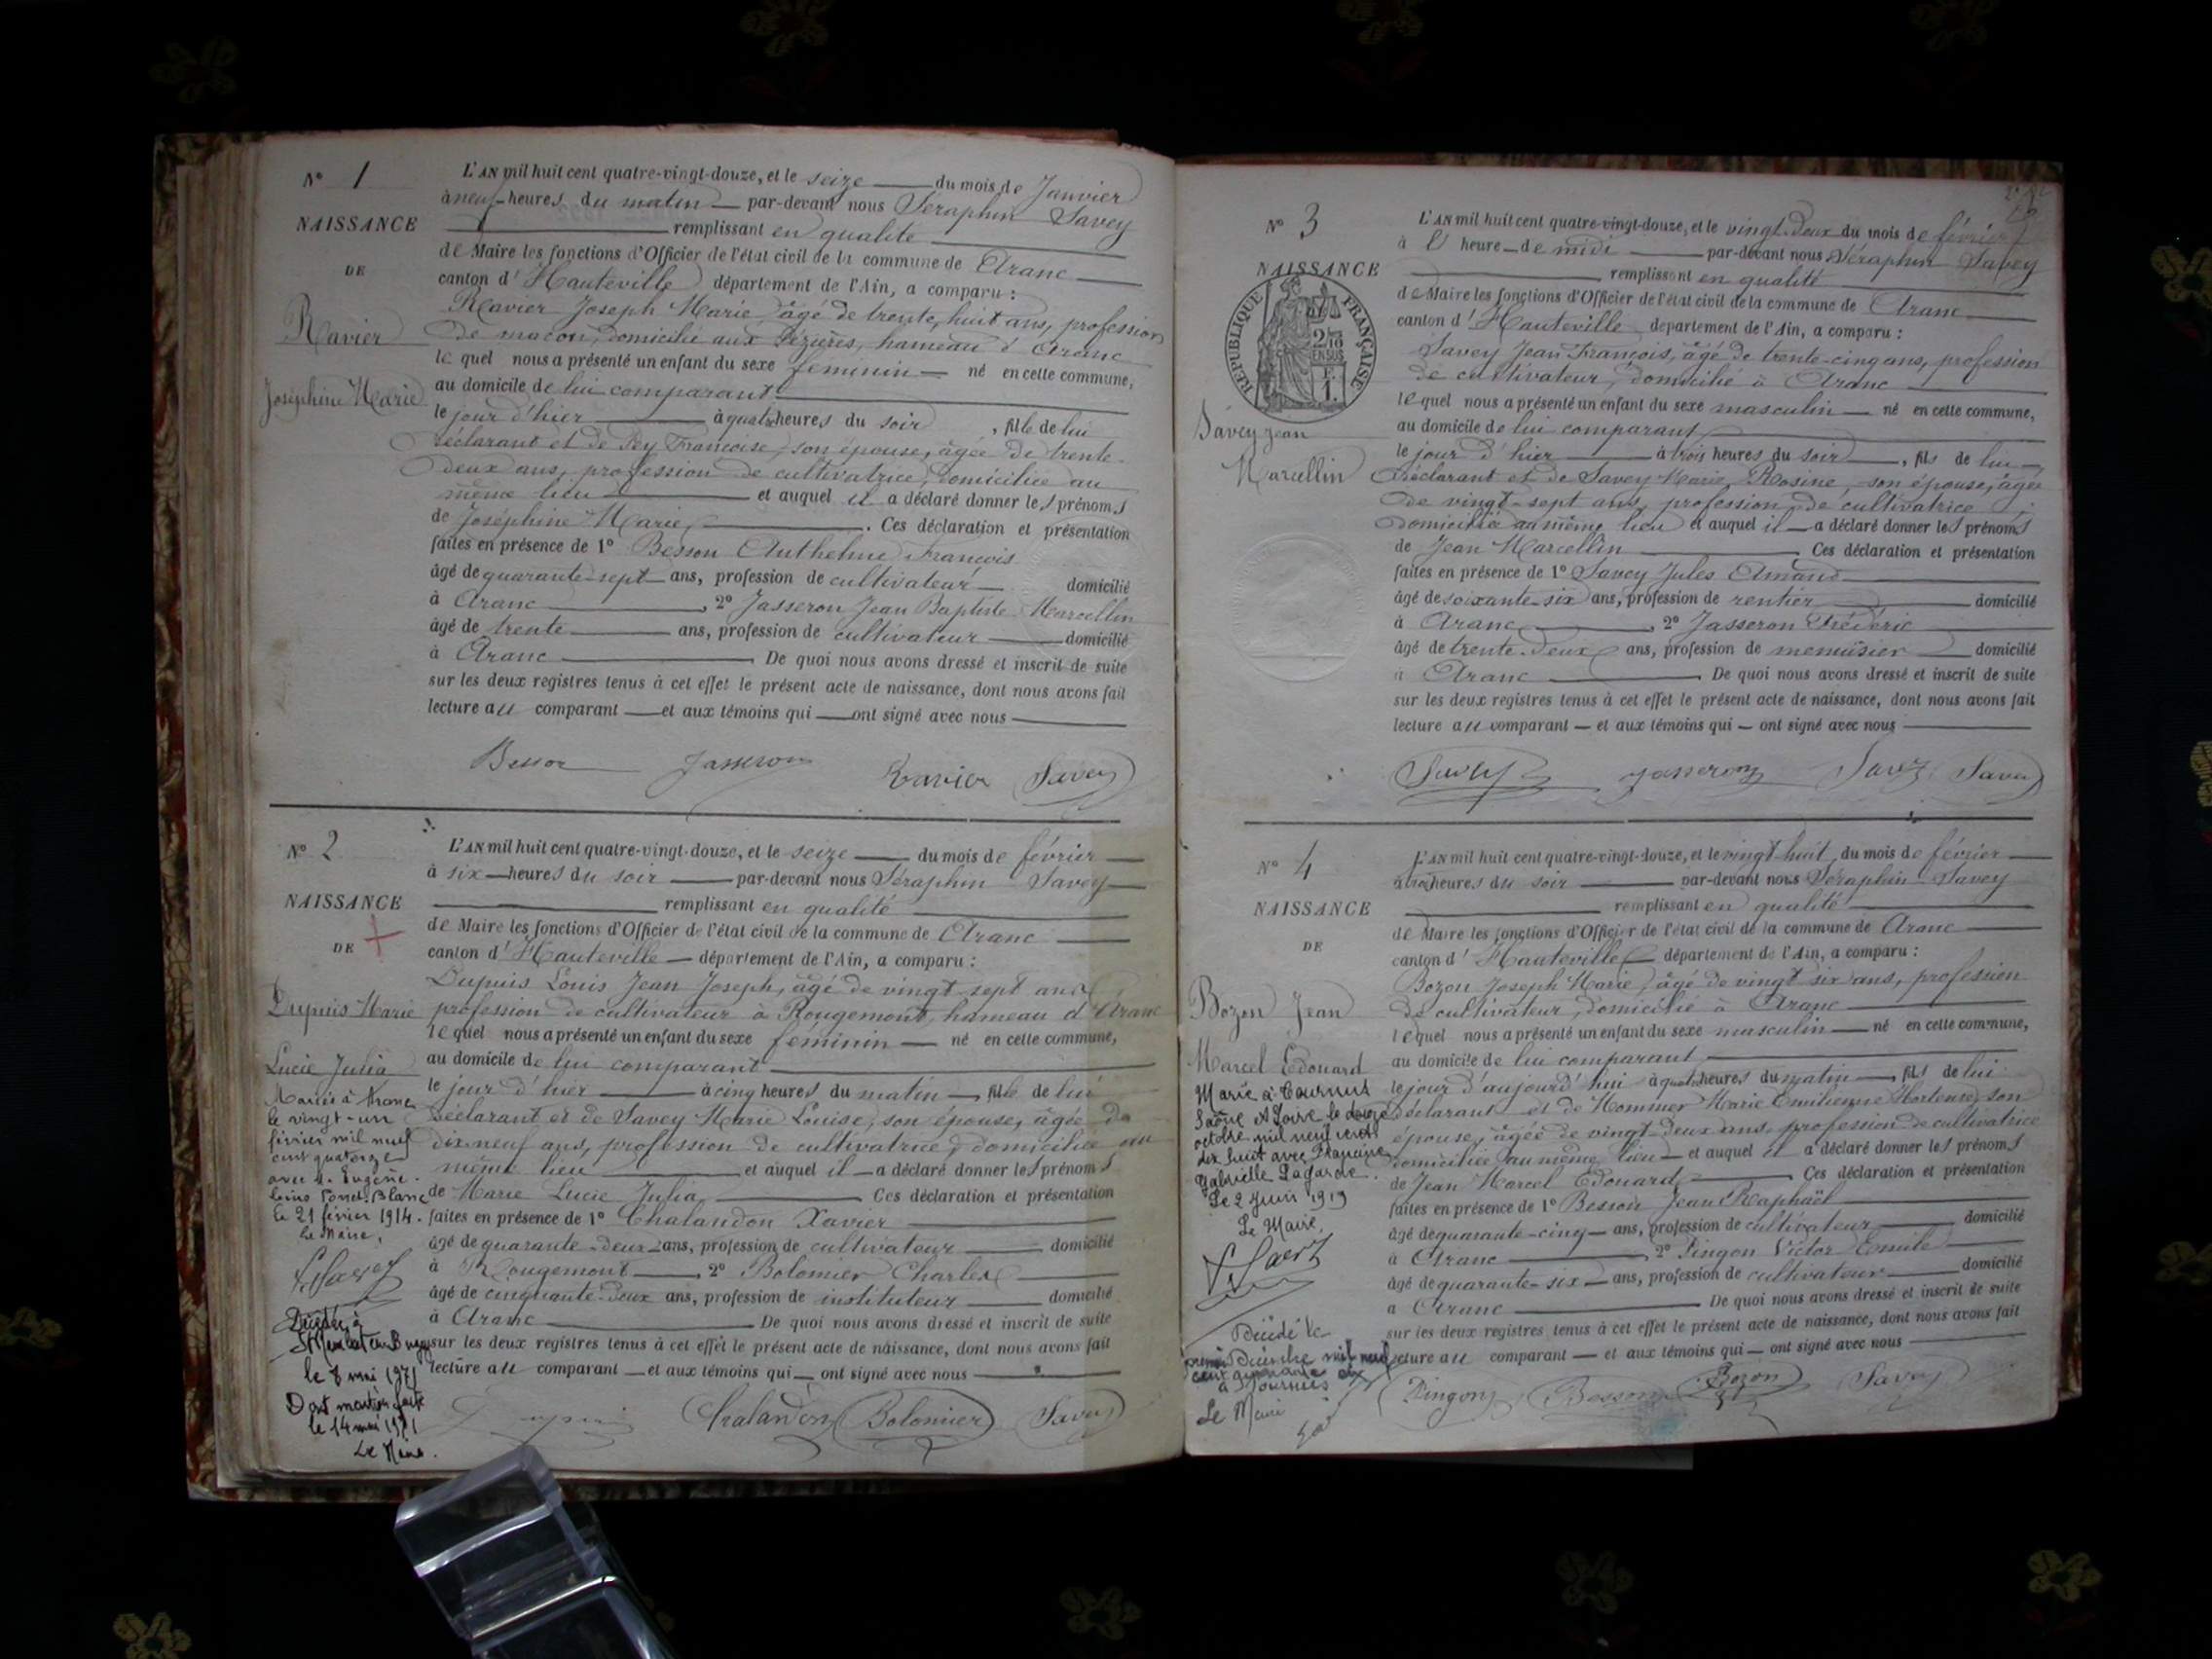 N° 1
NAISSANCE
DE
Ravier
Joséphine Marie
L'AN mil huit cent quatre-vingt-douze, et le seize du mois de Janvier
à neuf heures du matin par-devant nous Séraphin Savey
remplissant en qualité
de Maire les fonctions d'Officier de l'état civil de la commune de Aranc
canton d'Hauteville département de l'Ain, a comparu :
Ravier Joseph Marie âgé de trente, huit ans, profession
de macon, domicilié aux Pézières, hameau d'Aranc
le quel nous a présenté un enfant du sexe féminin né en cette commune,
au domicile de lui comparant
le jour d'hier à quatre heures du soir, fille de lui
déclarant et de Pey Françoise, son épouse, âgée de trente-
deux ans, profession de cultivatrice, domiciliée au
même lieu et auquel il a déclaré donner les prénoms
de Joséphine Marie. Ces déclaration et présentation
faites en présence de 1° Besson Anthelme François
âgé de quarante-sept ans, profession de cultivateur domicilié
à Aranc, 2° Jasseron Jean Baptiste Marcellin
âgé de trente ans, profession de cultivateur domicilié
à Aranc De quoi nous avons dressé et inscrit de suite
sur les deux registres tenus à cet effet le présent acte de naissance, dont nous avons fait
lecture au comparant et aux témoins qui ont signé avec nous
Besson Jasseron Ravier Savey
N° 2
NAISSANCE
DE
Dupuis Marie
Lucie Julia
Mariée à Aranc
le vingt-un
février mil neuf
cent quatorze
avec M. Eugène
Louis Blanc
le 21 février 1914.
le Maire,
Savey
Décédée à
St Rambert en Bugey
le 8 mai 1971
Dont mention faite
le 14 mai 1971
Le Maire.
L'AN mil huit cent quatre-vingt-douze, et le seize du mois de février
à six heures du soir par-devant nous Séraphin Savey
remplissant en qualité
de Maire les fonctions d'Officier de l'état civil de la commune de Aranc
canton d'Hauteville département de l'Ain, a comparu :
Dupuis Louis Jean Joseph, âgé de vingt sept ans
profession de cultivateur à Rougemont, hameau d'Aranc
le quel nous a présenté un enfant du sexe féminin né en cette commune,
au domicile de lui comparant
le jour d'hier à cinq heures du matin, fille de lui
déclarant et de Savey Marie Louise, son épouse, âgée de
dix-neuf ans, profession de cultivatrice, domiciliée au
même lieu et auquel il a déclaré donner les prénoms
de Marie Lucie Julia Ces déclaration et présentation
faites en présence de 1° Chalandon Xavier
âgé de quarante-deux ans, profession de cultivateur domicilié
à Rougemont, 2° Bolomier Charles
âgé de cinquante-deux ans, profession de instituteur domicilié
à Aranc De quoi nous avons dressé et inscrit de suite
sur les deux registres tenus à cet effet le présent acte de naissance, dont nous avons fait
lecture au comparant et aux témoins qui ont signé avec nous
Dupuis Chalandon Bolomier Savey
N° 3
NAISSANCE
RÉPUBLIQUE FRANÇAISE
2/10 EN SUS
Savey Jean
Marcellin
L'AN mil huit cent quatre-vingt-douze, et le vingt-deux du mois de février
à l' heure de midi par-devant nous Séraphin Savey
remplissant en qualité
de Maire les fonctions d'Officier de l'état civil de la commune de Aranc
canton d'Hauteville département de l'Ain, a comparu :
Savey Jean François, âgé de trente-cinq ans, profession
de cultivateur, domicilié à Aranc
le quel nous a présenté un enfant du sexe masculin né en cette commune,
au domicile de lui comparant
le jour d'hier à trois heures du soir, fils de lui
déclarant et de Savey Marie Rosine, son épouse, âgée
de vingt-sept ans, profession de cultivatrice
domiciliée au même lieu et auquel il a déclaré donner les prénoms
de Jean Marcellin Ces déclaration et présentation
faites en présence de 1° Savey Jules Amand
âgé de soixante-six ans, profession de rentier domicilié
à Aranc, 2° Jasseron Frédéric
âgé de trente-deux ans, profession de menuisier domicilié
à Aranc De quoi nous avons dressé et inscrit de suite
sur les deux registres tenus à cet effet le présent acte de naissance, dont nous avons fait
lecture au comparant et aux témoins qui ont signé avec nous
Savey Jasseron Savey Savey
N° 4
NAISSANCE
DE
Bozon Jean
Marcel Edouard
Marié à Tournus
Saône et Loire le douze
octobre mil neuf cent
dix huit avec Francine
Gabrielle Lagarde.
Le 2 Juin 1919
Le Maire,
Décédé le
premier Décembre mil neuf
cent quarante six
à Tournus
Le Maire
L'AN mil huit cent quatre-vingt-douze, et le vingt huit du mois de février
à trois heures du soir par-devant nous Séraphin Savey
remplissant en qualité
de Maire les fonctions d'Officier de l'état civil de la commune de Aranc
canton d'Hauteville département de l'Ain, a comparu :
Bozon Joseph Marie, âgé de vingt six ans, profession
de cultivateur, domicilié à Aranc
le quel nous a présenté un enfant du sexe masculin né en cette commune,
au domicile de lui comparant
le jour d'aujourd'hui à quatre heures du matin, fils de lui
déclarant et de Hommer Marie Emilienne Hortense, son
épouse, âgée de vingt-deux ans, profession de cultivatrice
domiciliée au même lieu et auquel il a déclaré donner les prénoms
de Jean Marcel Edouard Ces déclaration et présentation
faites en présence de 1° Besson Jean Raphaël
âgé de quarante-cinq ans, profession de cultivateur domicilié
à Aranc, 2° Pingon Victor Emile
âgé de quarante-six ans, profession de cultivateur domicilié
à Aranc De quoi nous avons dressé et inscrit de suite
sur les deux registres tenus à cet effet le présent acte de naissance, dont nous avons fait
lecture au comparant et aux témoins qui ont signé avec nous
Pingon Besson Bozon Savey